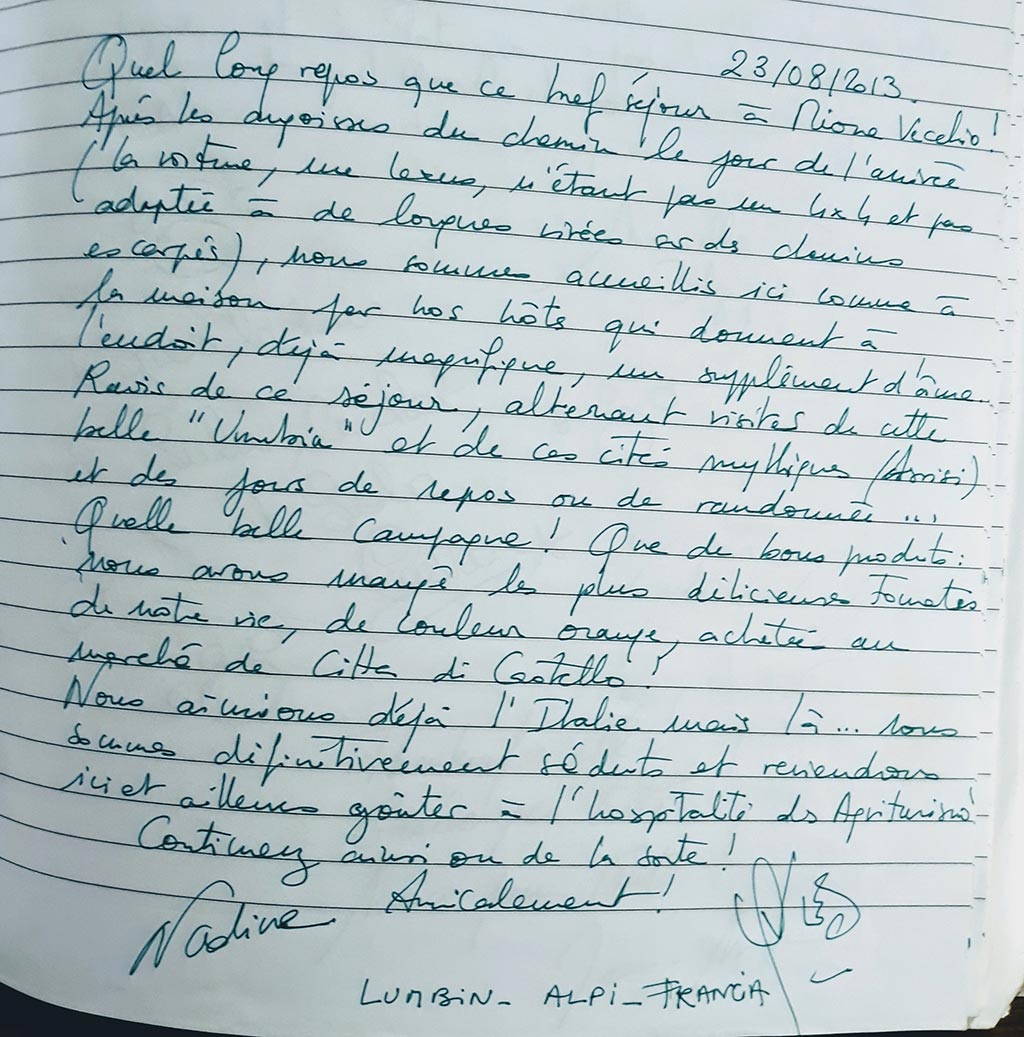 23/08/2013.
Quel long repos que ce bref séjour à Mione Vecchio!
Après les angoisses du chemin le jour de l'arrivée
(la voiture, une lexus, n'étant pas un 4x4 et pas
adaptée à de longues virées sur ds chemins
escarpés), nous sommes accueillis ici comme à
la maison par nos hôts qui donnent à
l'endroit, déjà magnifique, un supplément d'âme.
Ravis de ce séjour, alternant visites de cette
belle "Umbria" et de ces cités mythiques (Assisi)
et des jours de repos ou de randonnée...
Quelle belle campagne! Que de bons produits:
nous avons mangé les plus délicieuses Tomates
de notre vie, de couleur orange, achetée au
marché de Citta di Castello!
Nous aimions déjà l'Italie mais là... nous
sommes définitivement séduits et reviendrons
ici et ailleurs goûter à l'hospitalité ds Agriturismo-
Continuez ainsi ou de la sorte!
Amicalement!
Nadine
LUMBIN- ALPI-FRANCIA